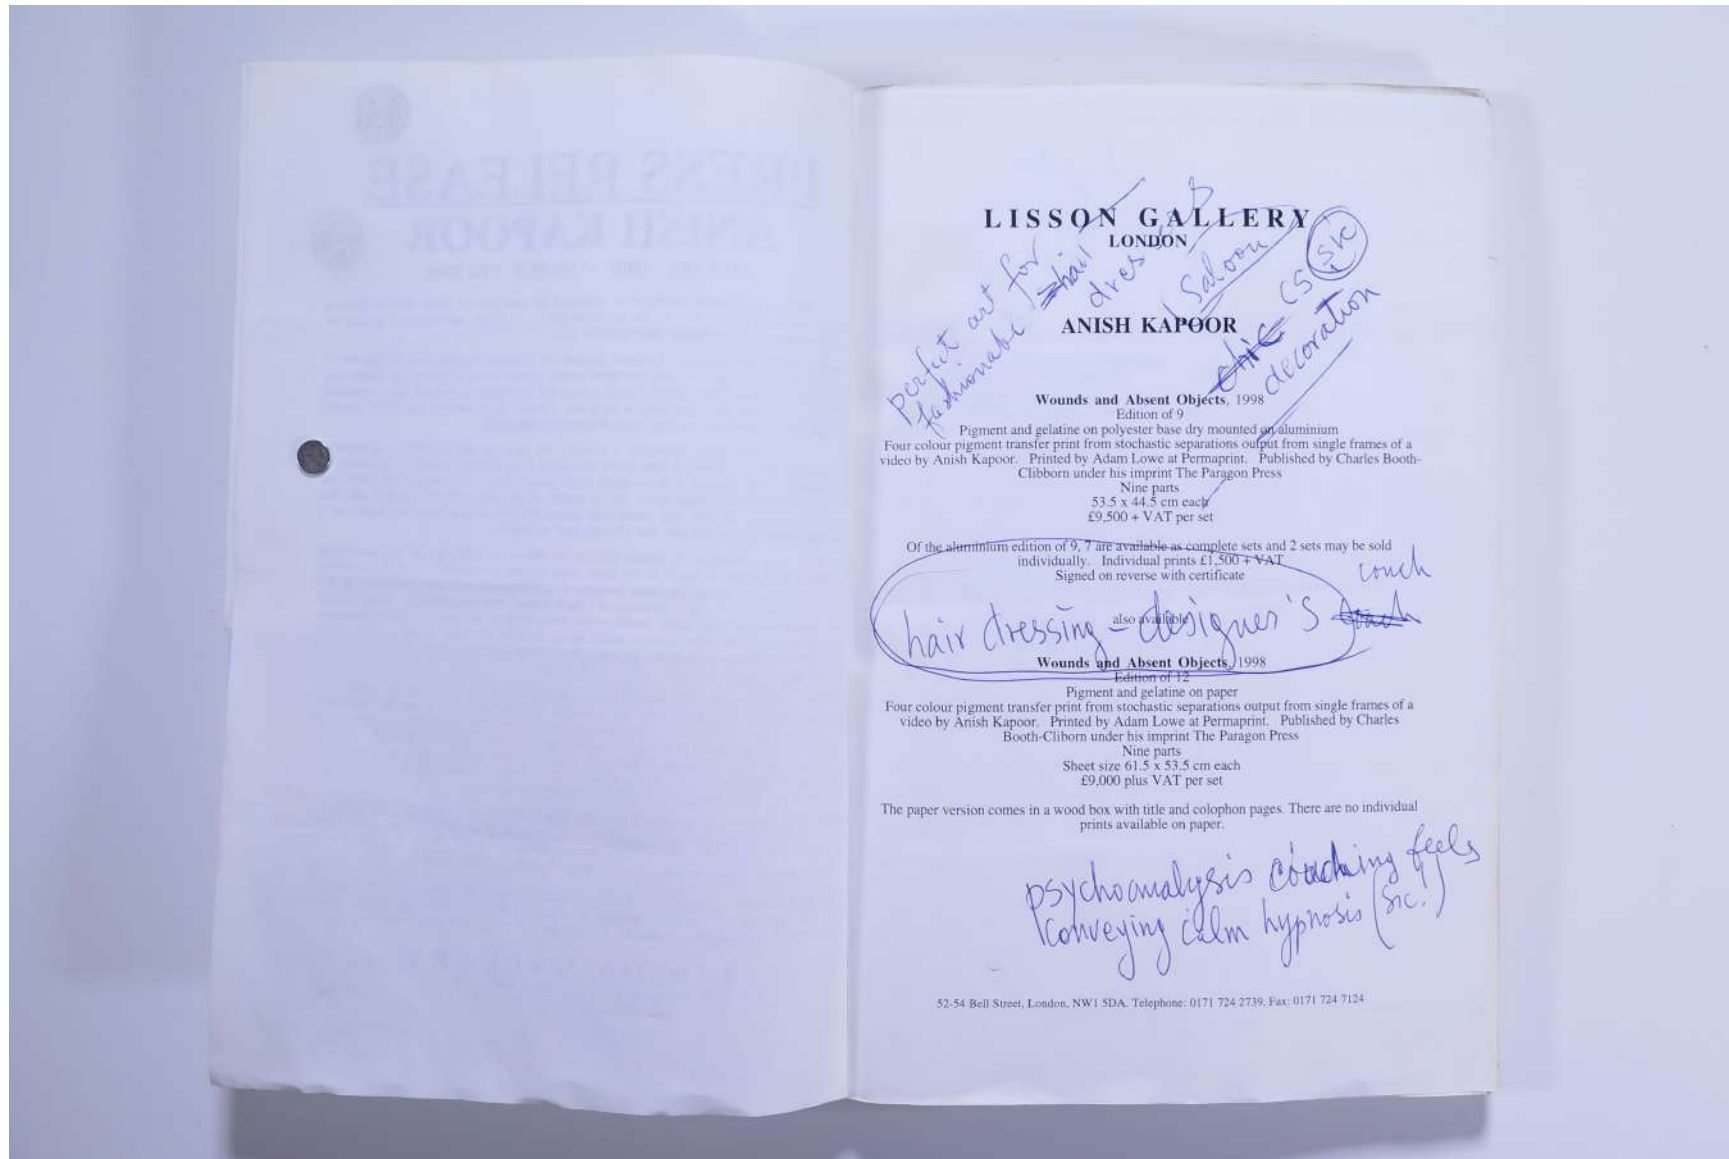 PRESS RELEASE
ANISH KAPOOR
LISSON GALLERY
LONDON
perfect art for
fashionable hair
dress
Saloon
chic
sic
decoration
ANISH KAPOOR
Wounds and Absent Objects, 1998
Edition of 9
Pigment and gelatine on polyester base dry mounted on aluminium
Four colour pigment transfer print from stochastic separations output from single frames of a
video by Anish Kapoor. Printed by Adam Lowe at Permaprint. Published by Charles Booth-
Clibborn under his imprint The Paragon Press
Nine parts
53.5 x 44.5 cm each
£9,500 + VAT per set
Of the aluminium edition of 9, 7 are available as complete sets and 2 sets may be sold
individually. Individual prints £1,500 + VAT
Signed on reverse with certificate
couch
also available
hair dressing - designer's
Wounds and Absent Objects, 1998
Edition of 12
Pigment and gelatine on paper
Four colour pigment transfer print from stochastic separations output from single frames of a
video by Anish Kapoor. Printed by Adam Lowe at Permaprint. Published by Charles
Booth-Cliborn under his imprint The Paragon Press
Nine parts
Sheet size 61.5 x 53.5 cm each
£9,000 plus VAT per set
The paper version comes in a wood box with title and colophon pages. There are no individual
prints available on paper.
psychoanalysis couching feels
conveying calm hypnosis (sic!)
52-54 Bell Street, London, NW1 5DA. Telephone: 0171 724 2739, Fax: 0171 724 7124